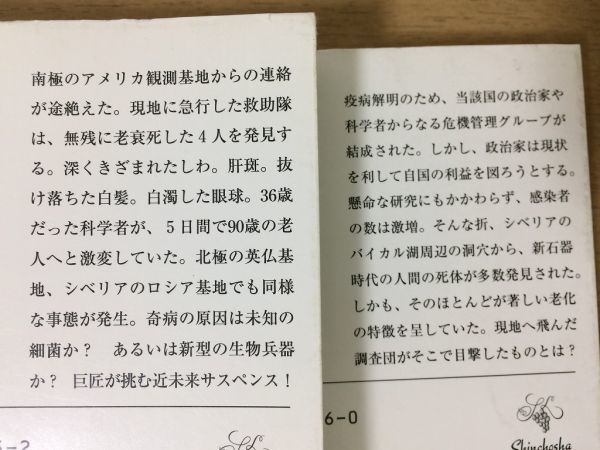 南極のアメリカ観測基地からの連絡
が途絶えた。現地に急行した救助隊
は、無残に老衰死した4人を発見す
る。深くきざまれたしわ。肝斑。抜
け落ちた白髪。白濁した眼球。36歳
だった科学者が、5日間で90歳の老
人へと激変していた。北極の英仏基
地、シベリアのロシア基地でも同様
な事態が発生。奇病の原因は未知の
細菌か？ あるいは新型の生物兵器
か？ 巨匠が挑む近未来サスペンス！
疫病解明のため、当該国の政治家や
科学者からなる危機管理グループが
結成された。しかし、政治家は現状
を利して自国の利益を図ろうとする。
懸命な研究にもかかわらず、感染者
の数は激増。そんな折、シベリアの
バイカル湖周辺の洞穴から、新石器
時代の人間の死体が多数発見された。
しかも、そのほとんどが著しい老化
の特徴を呈していた。現地へ飛んだ
調査団がそこで目撃したものとは？
6-0
Shinchosha